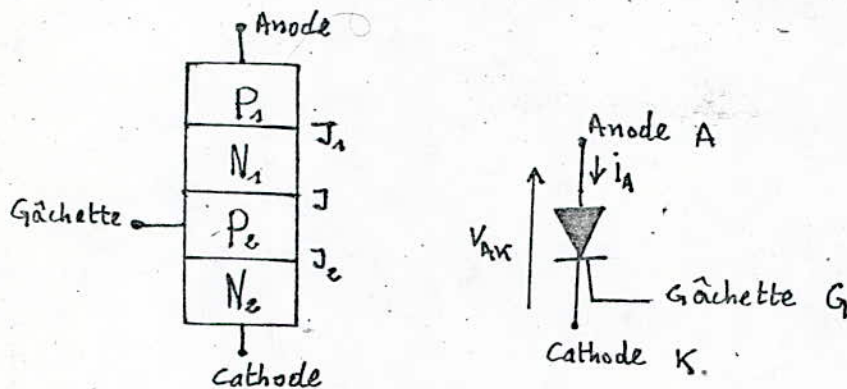 Anode
P1
J1
N1
J
Gâchette
P2
J2
N2
Cathode
Anode A
iA
VAK
Gâchette G
Cathode K.